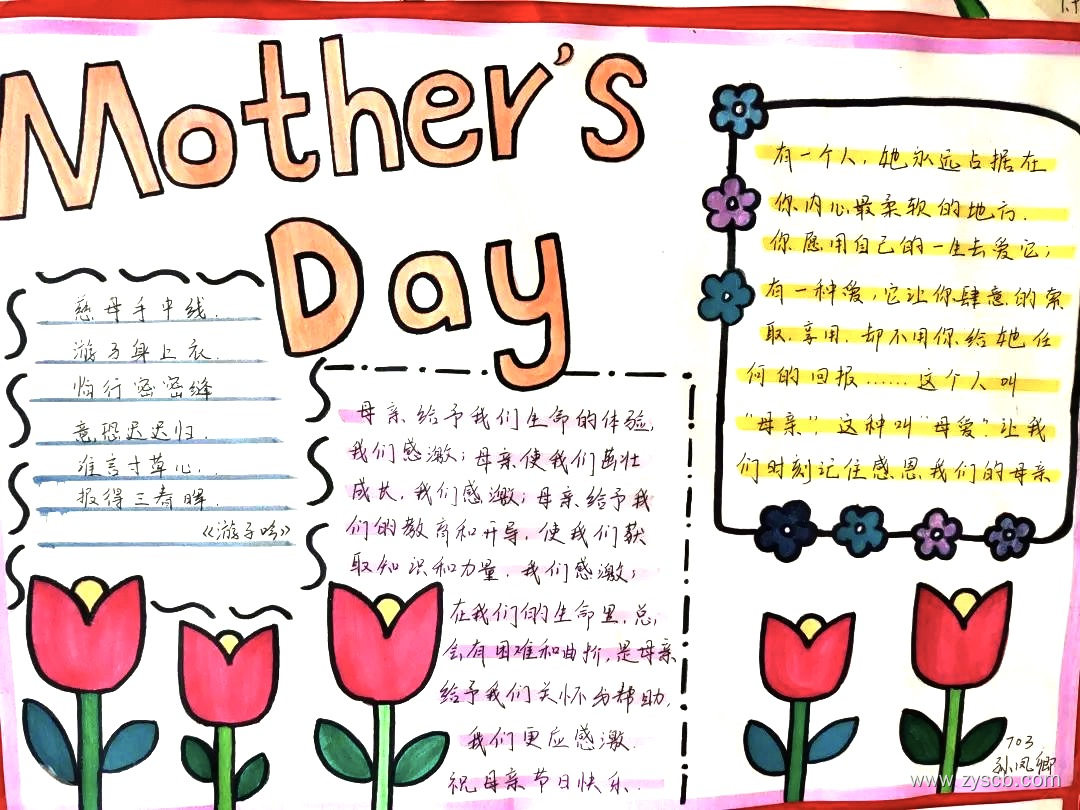 Mother's
Day
慈母手中线.
游子身上衣.
临行密密缝
意恐迟迟归.
谁言寸草心.
报得三春晖.
《游子吟》
母亲给予我们生命的体验,
我们感激;母亲使我们茁壮
成长,我们感激;母亲给予我
们的教育和开导,使我们获
取知识和力量,我们感激;
在我们的生命里,总,
会有困难和曲折,是母亲
给予我们关怀与帮助,
我们更应感激.
祝母亲节日快乐.
有一个人,她永远占据在
你内心最柔软的地方.
你愿用自己的一生去爱它;
有一种爱,它让你肆意的索
取.享用.却不用你给她任
何的回报……这个人叫
“母亲”,这种叫“母爱”.让我
们时刻记住感恩我们的母亲
703
孙凤卿
www.zyscb.com